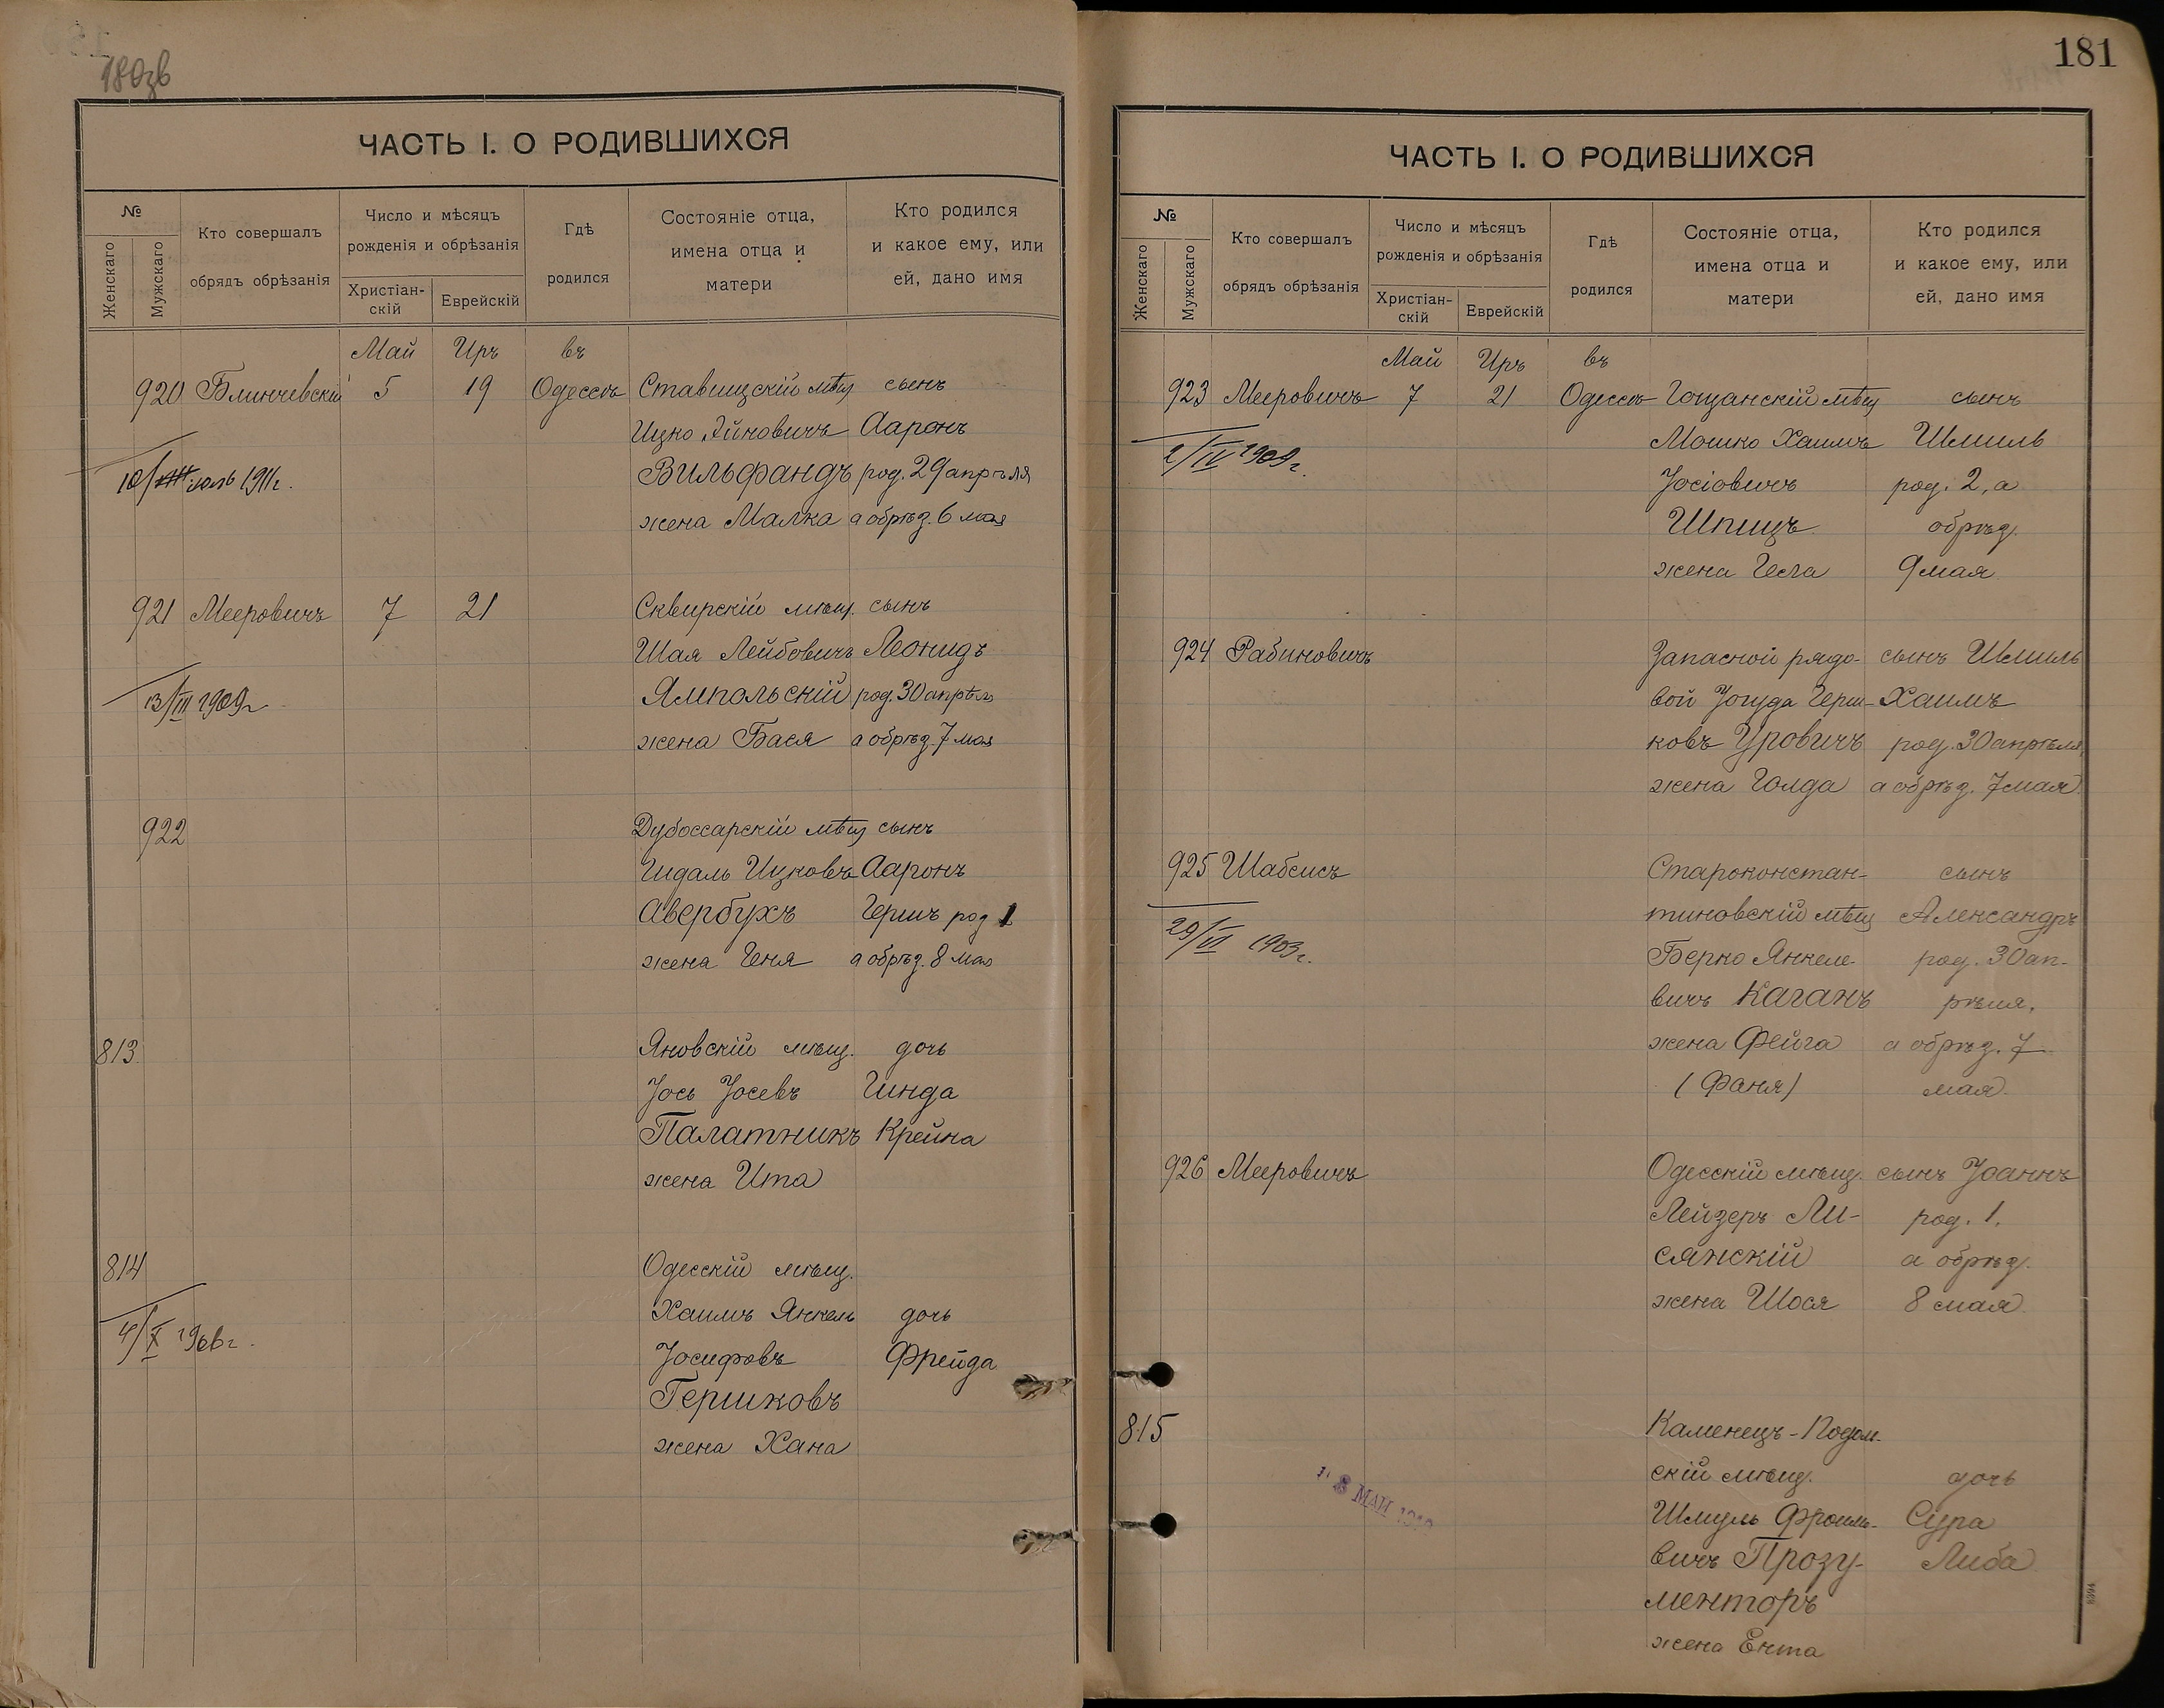 180зв
ЧАСТЬ I. О РОДИВШИХСЯ
№
Женскаго
Мужскаго
Кто совершалъ
обрядъ обрѣзанія
Число и мѣсяцъ
рожденія и обрѣзанія
Христіан-
скій
Еврейскій
Гдѣ
родился
Состояніе отца,
имена отца и
матери
Кто родился
и какое ему, или
ей, дано имя
Май Иръ въ
920 Блинчевскій 5 19 Одессѣ Ставищскій мѣщ сынъ
Ицко Айновичъ Ааронъ
Вильфандъ род. 29 апрѣля
10/ іюль 1911г.
жена Малка а обрѣз. 6 мая
921 Мееровичъ 7 21 Сквирскій мѣщ. сынъ
Шая Лейбовичъ Леонидъ
Ямпольскій род. 30 апрѣля
13/III 1909г
жена Бася а обрѣз. 7 мая
922 Дубоссарскій мѣщ сынъ
Гидаль Ицковъ Ааронъ
Авербухъ Гершъ род 1
жена Геня а обрѣз. 8 мая
813 Яновскій мѣщ. дочь
Іось Іосевъ Гинда
Палатникъ Крейна
жена Ита
814 Одесскій мѣщ.
Хаимъ Янкель дочь
4/X 1906г.
Іосифовъ Фрейда
Гершковъ
жена Хана
181
ЧАСТЬ I. О РОДИВШИХСЯ
№
Женскаго
Мужскаго
Кто совершалъ
обрядъ обрѣзанія
Число и мѣсяцъ
рожденія и обрѣзанія
Христіан-
скій
Еврейскій
Гдѣ
родился
Состояніе отца,
имена отца и
матери
Кто родился
и какое ему, или
ей, дано имя
Май Иръ въ
923 Мееровичъ 7 21 Одессѣ Гощанскій мѣщ сынъ
Мошко Хаимъ Шмиль
2/IV 1909г.
Іосіовичъ род. 2, а
Шпицъ обрѣз.
жена Гесга 9 мая
924 Рабиновичъ Запасной рядо- сынъ Шмиль
вой Іогуда Герш- Хаимъ
ковъ Уровичъ род. 30 апрѣля,
жена Голда а обрѣз. 7 мая
925 Шабсисъ Староконстан- сынъ
тиновскій мѣщ Александръ
29/VI 1903г.
Берко Янкеле- род. 30 ап-
вичъ Каганъ рѣля,
жена Фейга а обрѣз. 7
(Фаня) мая
926 Мееровичъ Одесскій мѣщ. сынъ Іоаннъ
Лейзеръ Ли- род. 1,
сянскій а обрѣз.
жена Шося 8 мая
815 Каменецъ-Подол-
скій мѣщ. дочь
Шмуль Фроимо- Сура
вичъ Прозу- Либа
менторъ
жена Ента
8 МАЙ